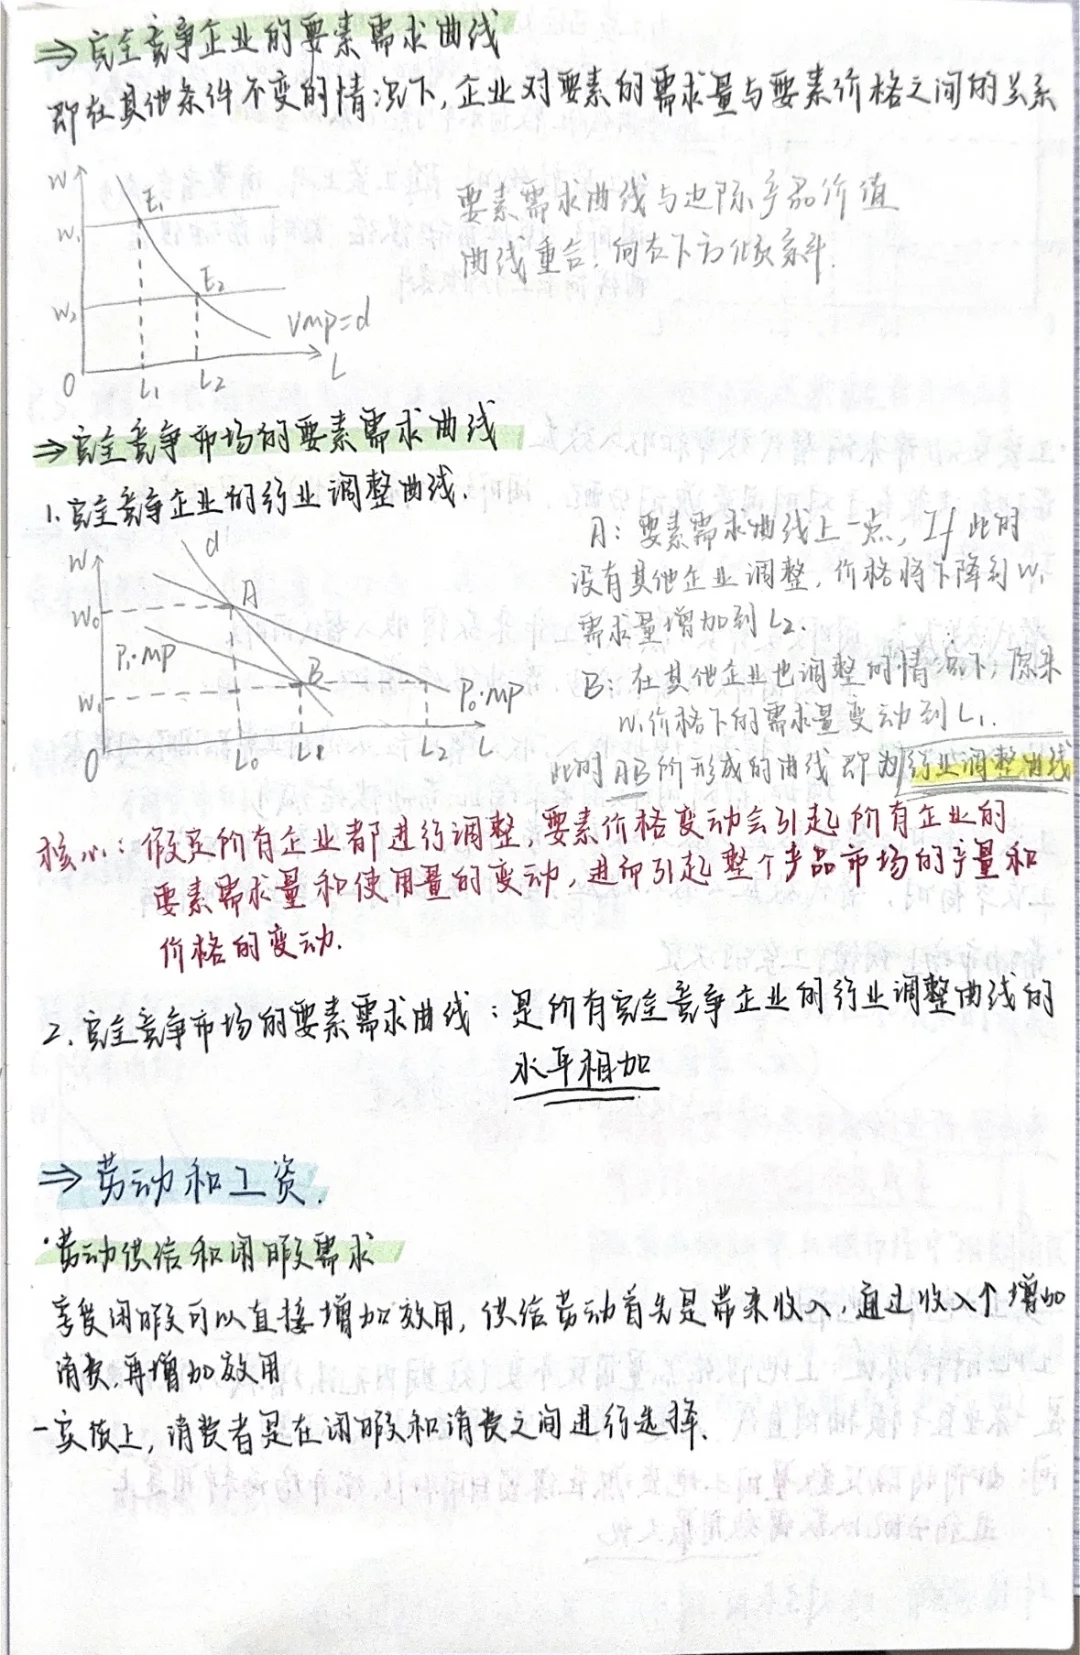 ⇒完全竞争企业的要素需求曲线
即在其他条件不变的情况下,企业对要素的需求量与要素价格之间的关系
W
E₁
W₁
E₂
W₂
VMP=d
O
L₁
L₂
L
要素需求曲线与边际产品价值
曲线重合,向右下方倾斜.
⇒完全竞争市场的要素需求曲线
1.完全竞争企业的行业调整曲线.
W
d
A
W₀
P₁·MP
B
W₁
P₀·MP
O
L₀
L₁
L₂
L
A:要素需求曲线上一点,If此时
没有其他企业调整,价格将下降到W₁
需求量增加到L₂.
B:在其他企业也调整的情况下,原来
W₁价格下的需求量变动到L₁.
此时AB所形成的曲线即为行业调整曲线
核心:假定所有企业都进行调整,要素价格变动会引起所有企业的
要素需求量和使用量的变动,进而引起整个产品市场的产量和
价格的变动.
2.完全竞争市场的要素需求曲线:是所有完全竞争企业的行业调整曲线的
水平相加
⇒劳动和工资.
·劳动供给和闲暇需求
享受闲暇可以直接增加效用,供给劳动首先是带来收入,通过收入个增加
消费,再增加效用
-实质上,消费者是在闲暇和消费之间进行选择.